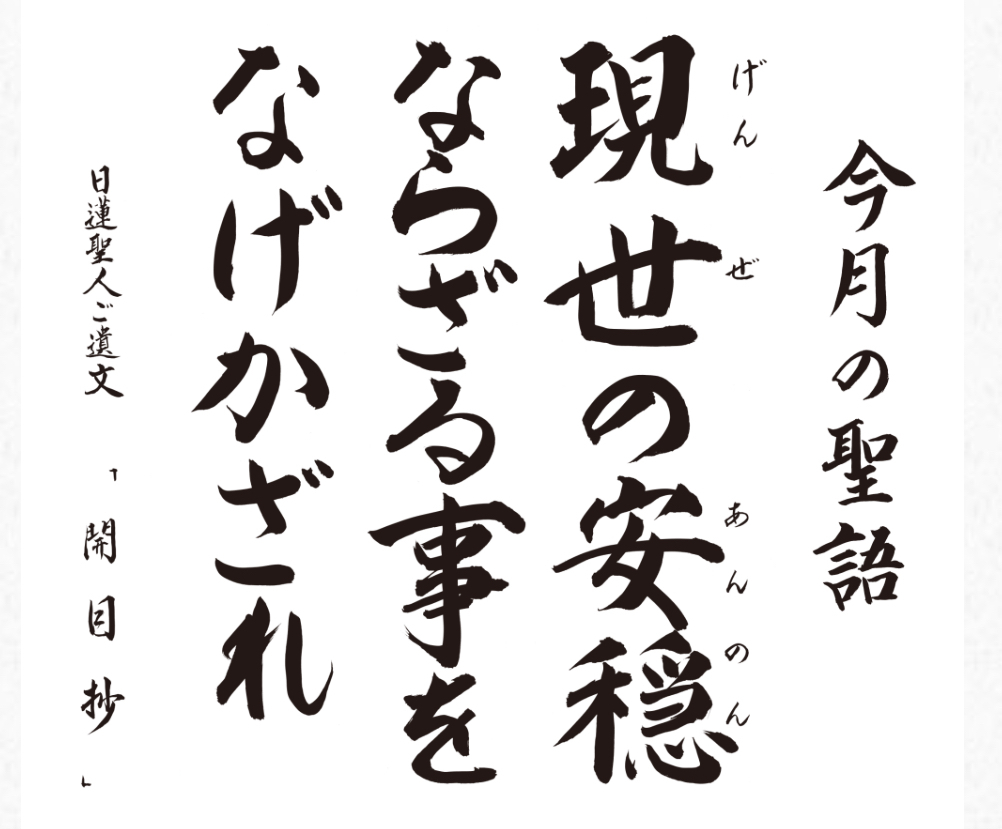 今月の聖語
現世の安穏
げんぜあんのん
ならざる事を
なげかざれ
日蓮聖人ご遺文「開目抄」